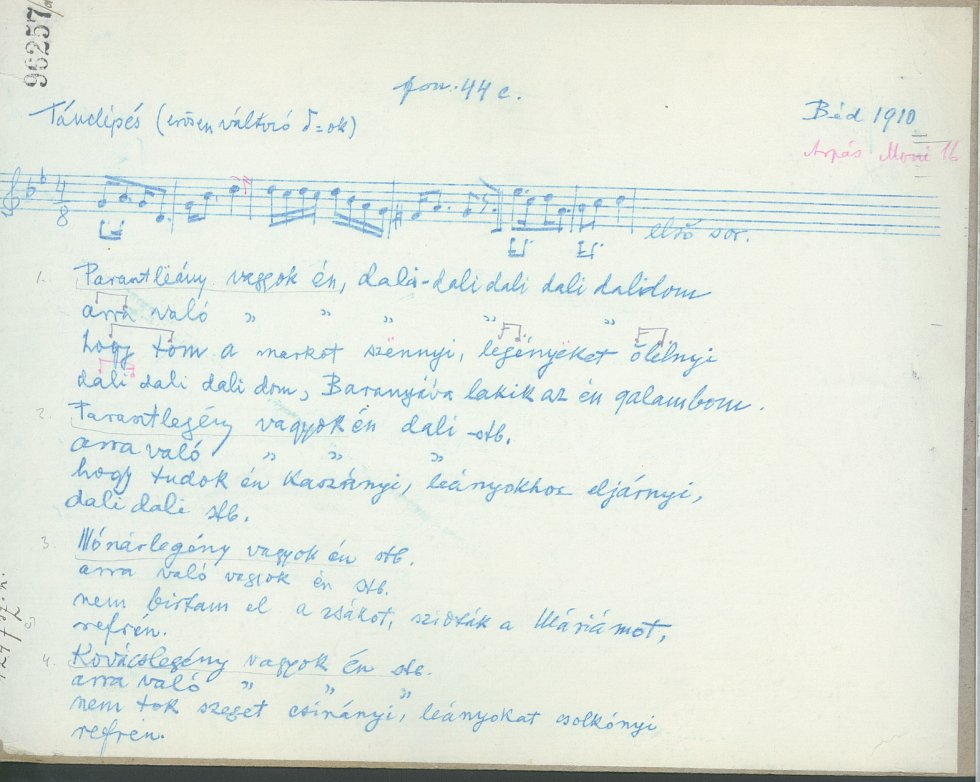 96257
fon. 44 c.
Tánclépés (erősen változó ♪=ok)
Béd 1910
Árpás Moni 16
4
8
első sor.
1. Parantleány vagyok én, dali-dali dali dali dalidom
arra való " " " " "
hogy tom a markot szënnyi, legényëket ölelnyi
dali dali dali dom, Baranyába lakik az én galambom.
2. Parantlegény vagyok én dali stb.
arra való " " "
hogy tudok én kaszányi, leányokhoz eljárnyi,
dali dali stb.
3. Mónárlegény vagyok én stb.
arra való vagyok én stb.
nem birtam el a zsákot, szidták a Máriámot,
refrén.
4. Kovácslegény vagyok én stb.
arra való " " "
nem tok szeget csinányi, leányokat csolkónyi
refrén.